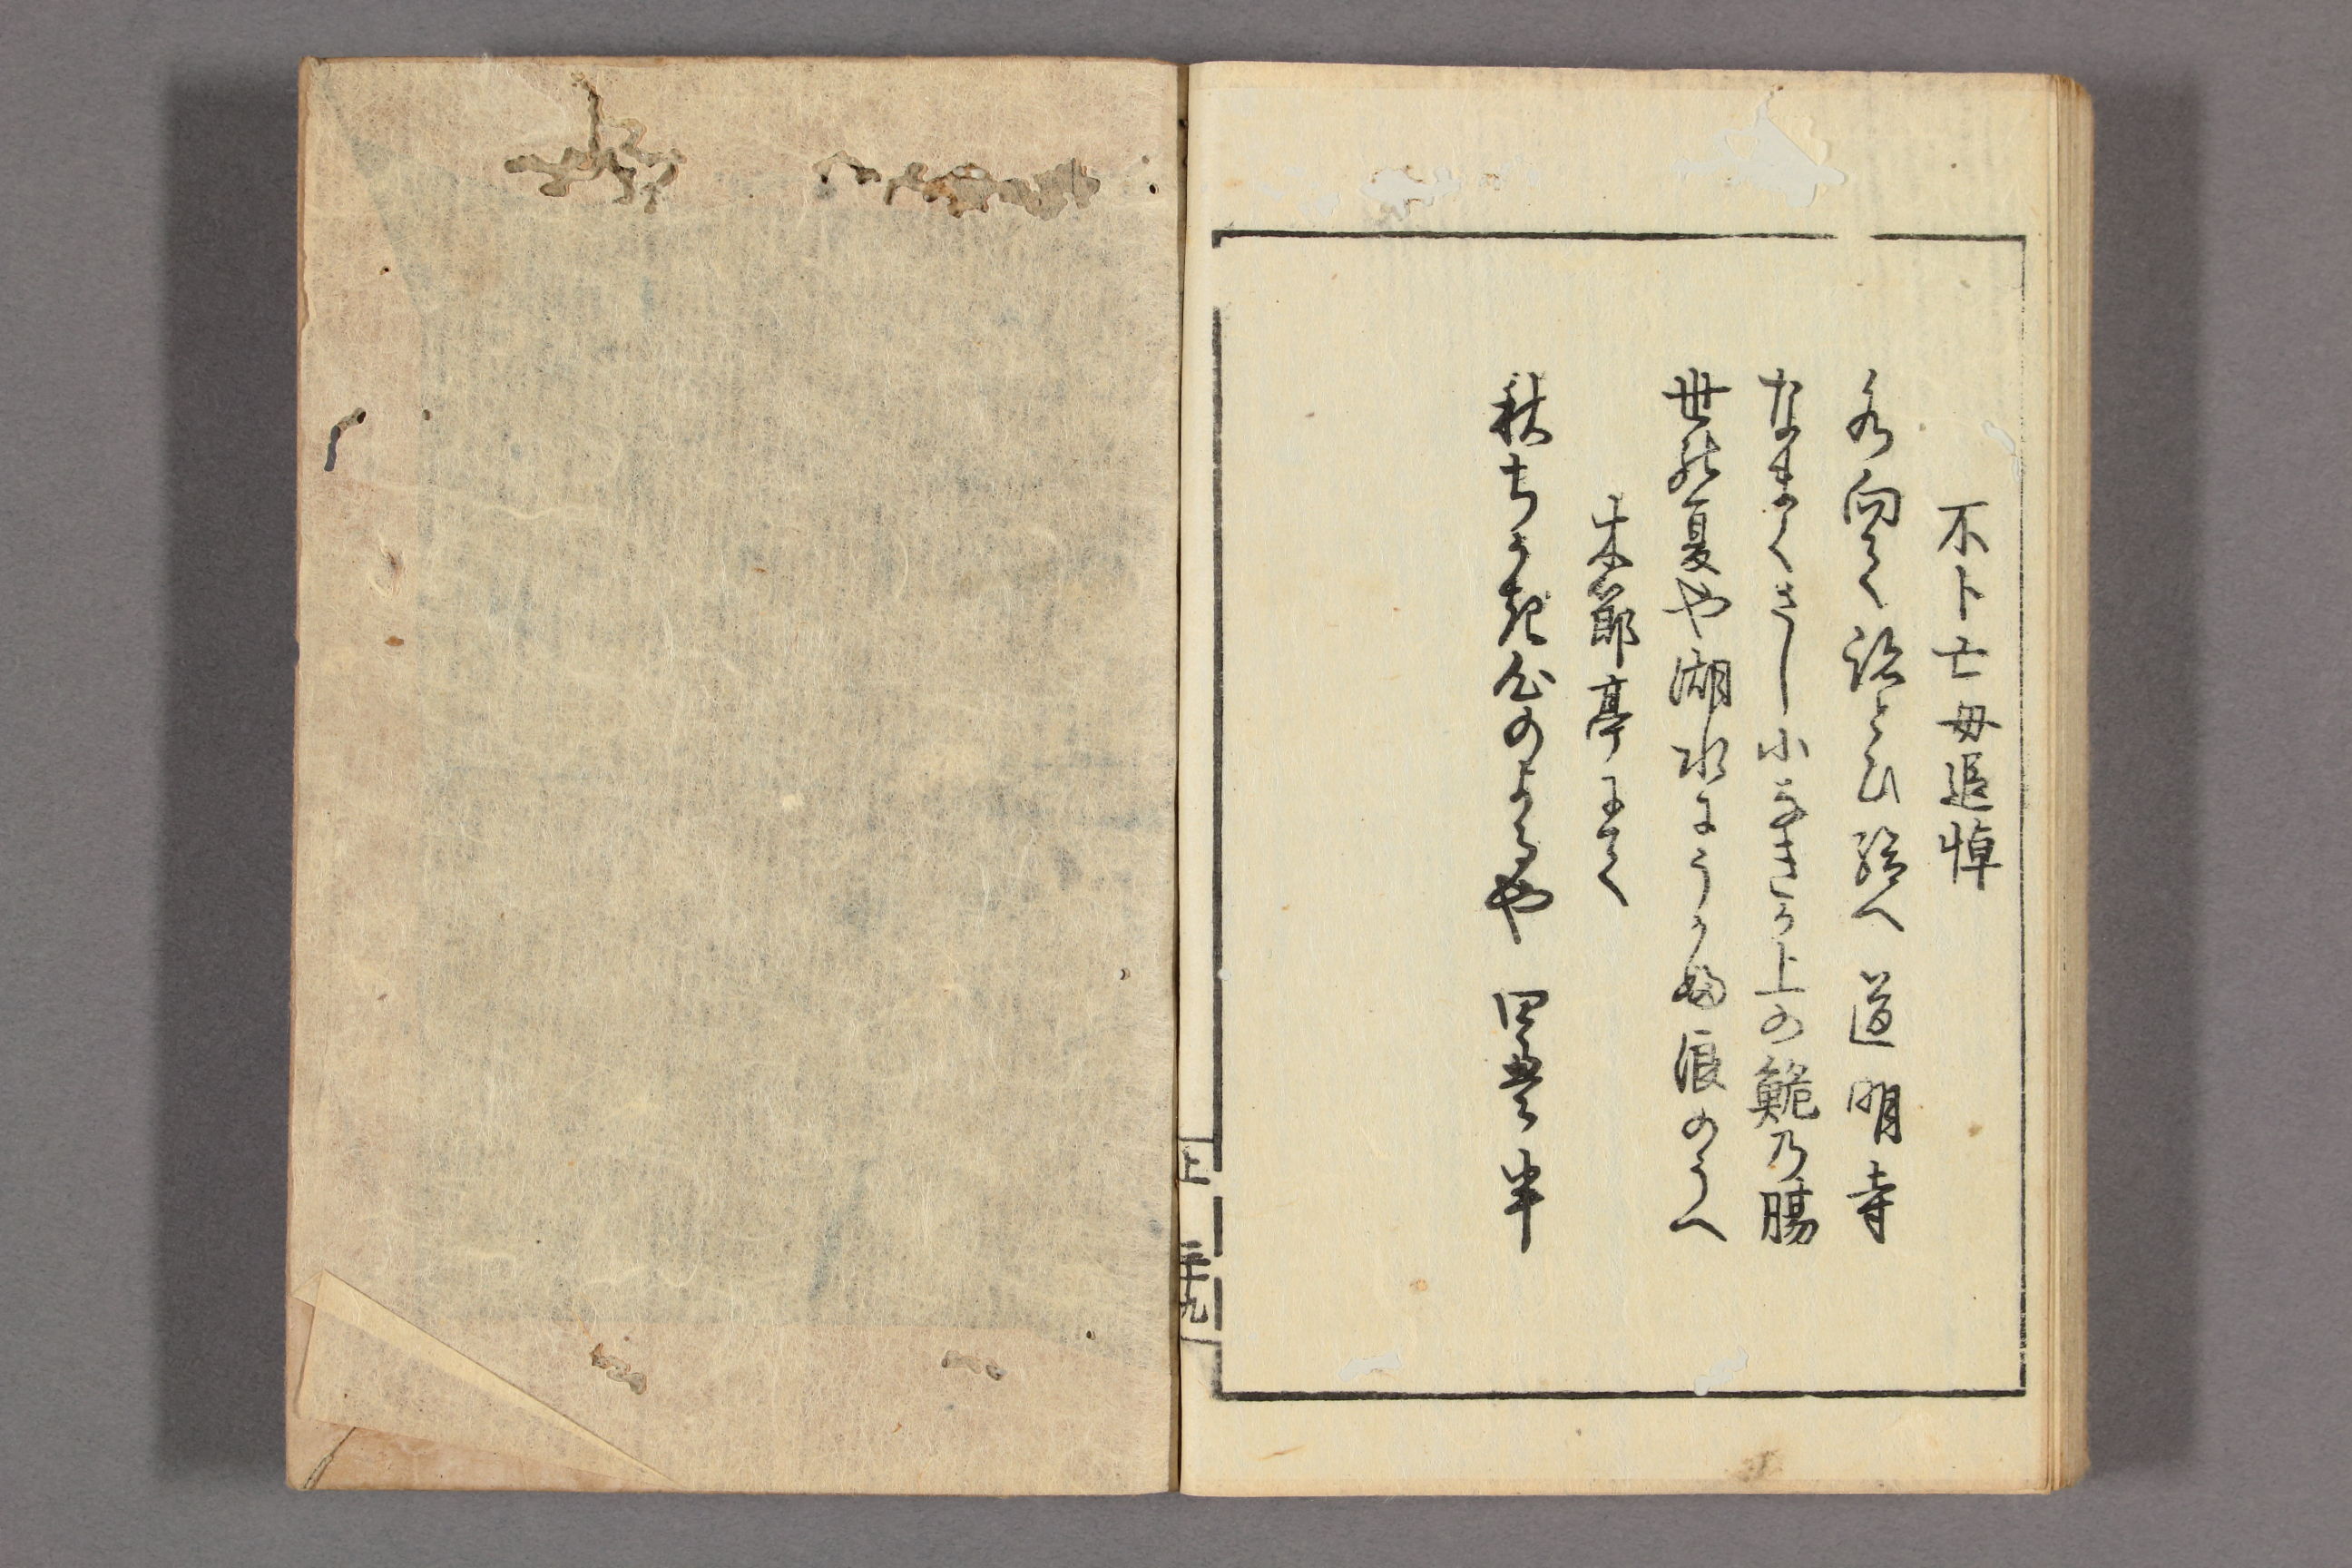 不卜亡母追悼
水向て跡とひ給へ道明寺
なまくさし小なきか上の鮠乃腸
世の夏や湖水にうかふ浪のうへ
木節亭にて
秋ちかき心のよるや四畳半
上 三十九